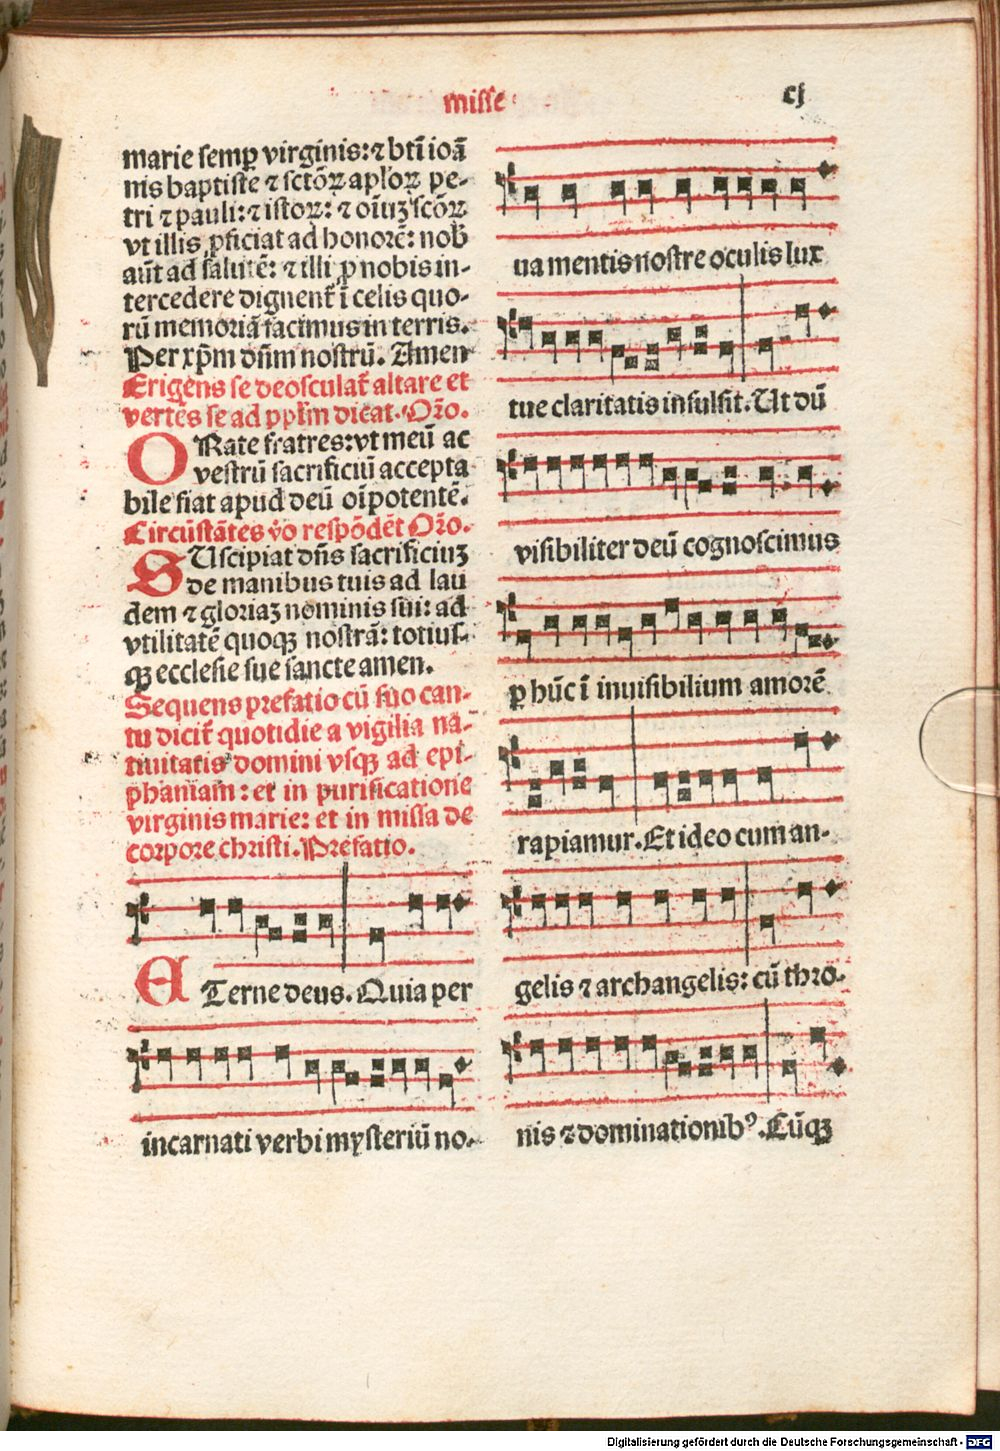 misse
cj
marie semꝑ virginis: ⁊ bti̅ ioa̅
nis baptiste ⁊ scto̅ꝝ aploꝝ pe-
tri ⁊ pauli: ⁊ istoꝝ: ⁊ oi̅uꝫ sco̅ꝝ
vt illis ꝓficiat ad honore̅: nob̅
au̅t ad salute̅: ⁊ illi ꝓ nobis in-
tercedere dignent̅ i̅ celis quo-
ru̅ memoria̅ facimus in terris.
Per xp̅m dn̅m nostru̅. Amen
Erige̅s se deosculat̅ altare et
verte̅s se ad ppl̅m dicat. Or̅o.
ORate fratres: vt meu̅ ac
vestru̅ sacrificiu̅ accepta
bile fiat apud deu̅ oi̅potente̅.
Circu̅sta̅tes v̊o respo̅de̅t Or̅o.
SUscipiat dn̅s sacrificiuꝫ
de manibus tuis ad lau
dem ⁊ gloriaꝫ nominis sui: ad
vtilitate̅ quoqꝫ nostra̅: totius-
qꝫ ecclesie sue sancte amen.
Sequens prefatio cu̅ suo can-
tu dicit̅ quotidie a vigilia na-
tiuitatis domini vsqꝫ ad epi-
phaniam: et in purificatione
virginis marie: et in missa de
corpore christi. Prefatio.
ETerne deus. Quia per
incarnati verbi mysteriu̅ no-
ua mentis nostre oculis lux
tue claritatis insulsit. Ut du̅
visibiliter deu̅ cognoscimus
ꝑ hu̅c i̅ inuisibilium amore̅
rapiamur. Et ideo cum an-
gelis ⁊ archangelis: cu̅ thro-
nis ⁊ dominationibꝰ. Cu̅qꝫ
Digitalisierung gefördert durch die Deutsche Forschungsgemeinschaft - DFG